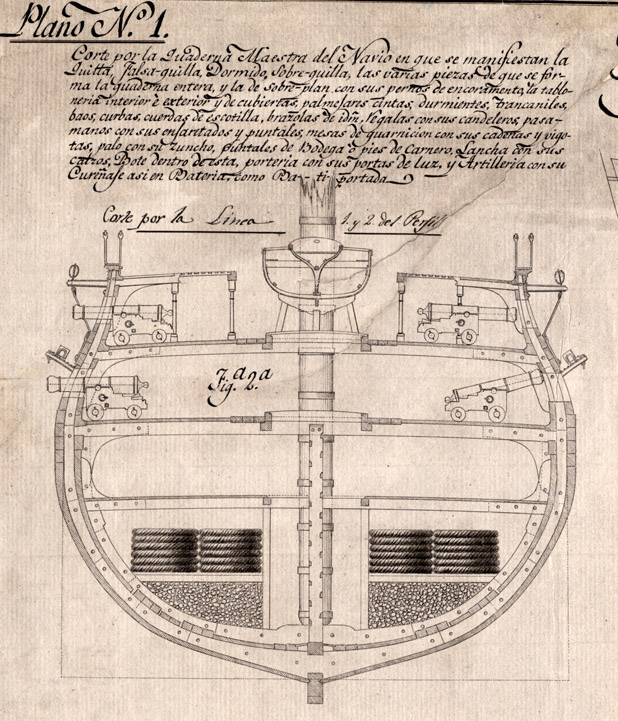 Plano N.º 1.
Corte por la Quaderna Maestra del Navio en que se manifiestan la
Quilla, falsa-quilla, Dormido, sobre-quilla, las varias piezas de que se for-
ma la quaderna entera, y la de sobre-plan con sus pernos de encoramenta, la tablo-
neria interior è exterior y de cubiertas, palmejares cintas, durmientes, trancaniles,
baos, curbas, cuerdas de escotilla, brazolas de idn, regalas con sus candeleros, pasa-
manos con sus enjaratados y puntales, mesas de guarnicion con sus cadenas y vigo-
tas, palo con su zuncho, puntales de Bodega ò pies de Carnero, Lancha con sus
calzos, Bote dentro de esta, porteria con sus portas de luz, y Artilleria con su
Cureñaje asi en Bateria, como Ba- ti- portada
Corte por la Linea 1. y 2. del Perfil
Fig. 2.ª